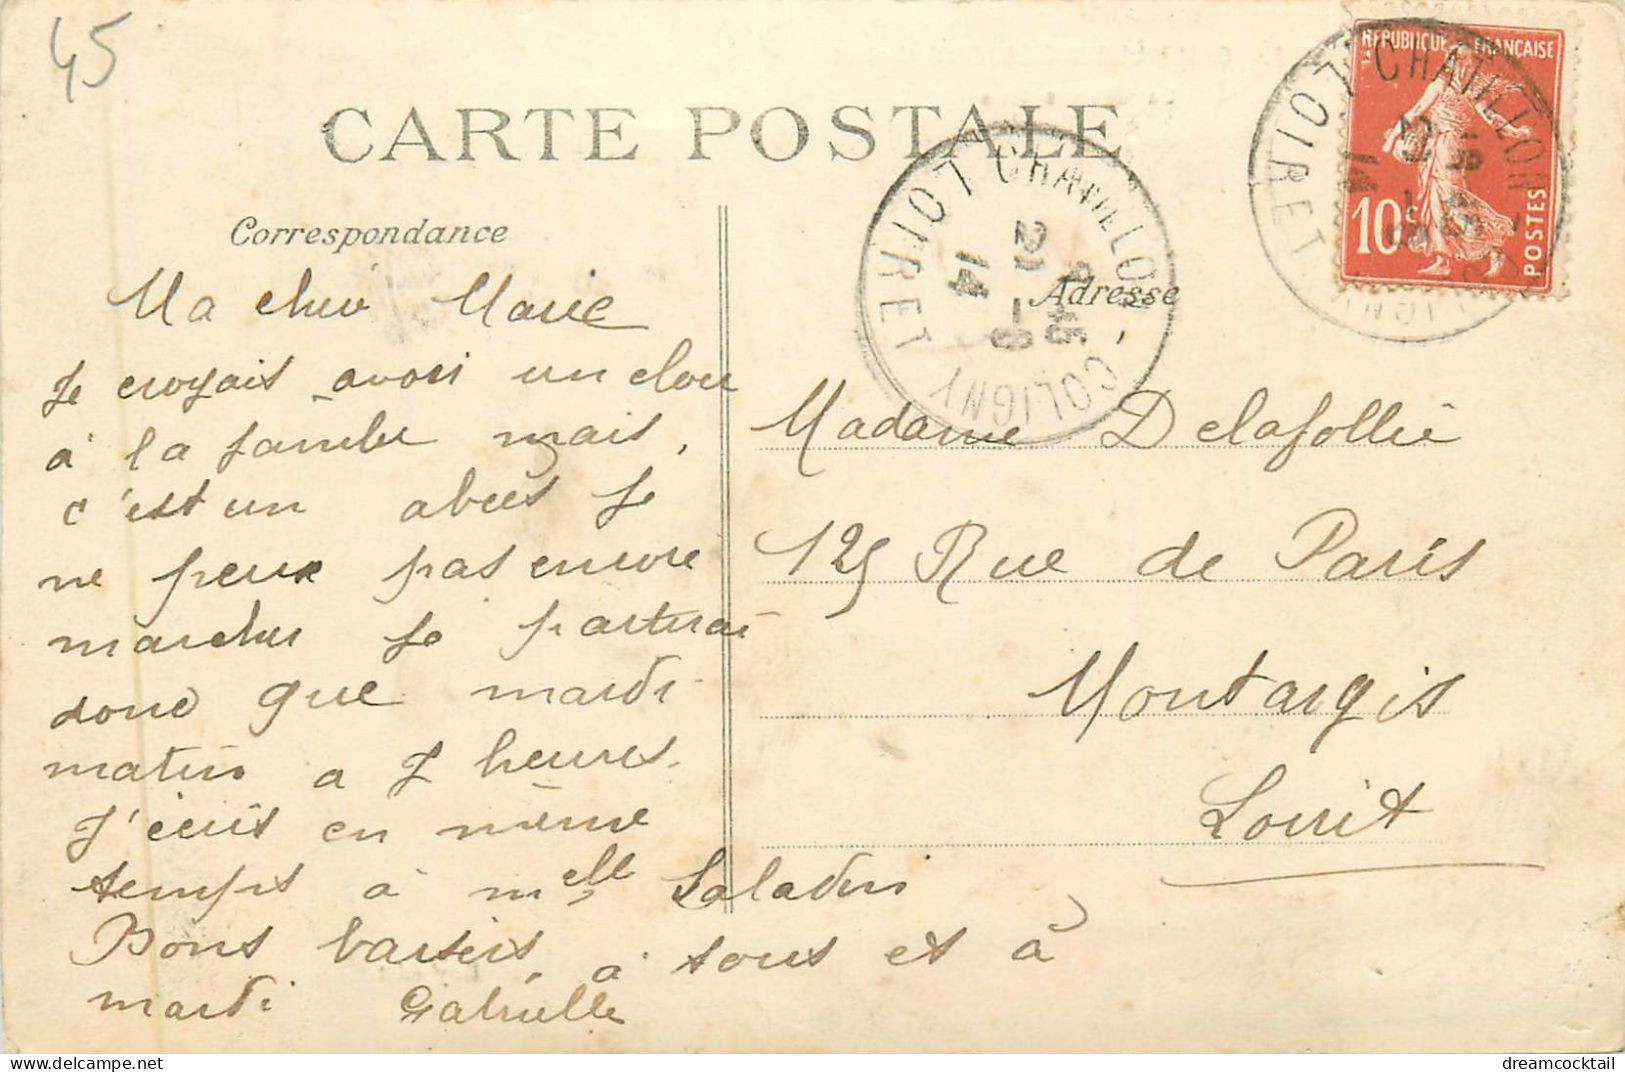 45
CARTE POSTALE
REPUBLIQUE FRANÇAISE
10c POSTES
CHATILLON - COLIGNY
LOIRET
CHATILLON - COLIGNY
LOIRET
21 - 8
14
Correspondance
Adresse
Ma cher Marie
Je croyais avoir un clou
à la jambe mais,
c'est un abces Je
ne peux pas encore
marcher Je partirai
donc que mardi
matin a 7 heures.
J'écris en même
temps à melle Saladin
Bons baisers à tous et à
mardi Gabrielle
Madame Delafollie
125 Rue de Paris
Montargis
Loirit
dreamcocktail